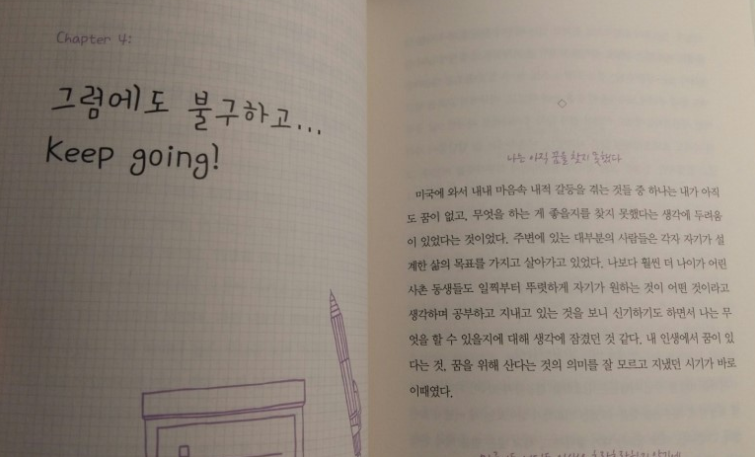 Chapter 4:
그럼에도 불구하고...
Keep going!
나는 아직 꿈을 찾지 못했다
미국에 와서 내내 마음속 내적 갈등을 겪는 것들 중 하나는 내가 아직
도 꿈이 없고, 무엇을 하는 게 좋을지를 찾지 못했다는 생각에 두려움
이 있었다는 것이었다. 주변에 있는 대부분의 사람들은 각자 자기가 설
계한 삶의 목표를 가지고 살아가고 있었다. 나보다 훨씬 더 나이가 어린
사촌 동생들도 일찍부터 뚜렷하게 자기가 원하는 것이 어떤 것이라고
생각하며 공부하고 지내고 있는 것을 보니 신기하기도 하면서 나는 무
엇을 할 수 있을지에 대해 생각에 잠겼던 것 같다. 내 인생에서 꿈이 있
다는 것, 꿈을 위해 산다는 것의 의미를 잘 모르고 지냈던 시기가 바로
이때였다.